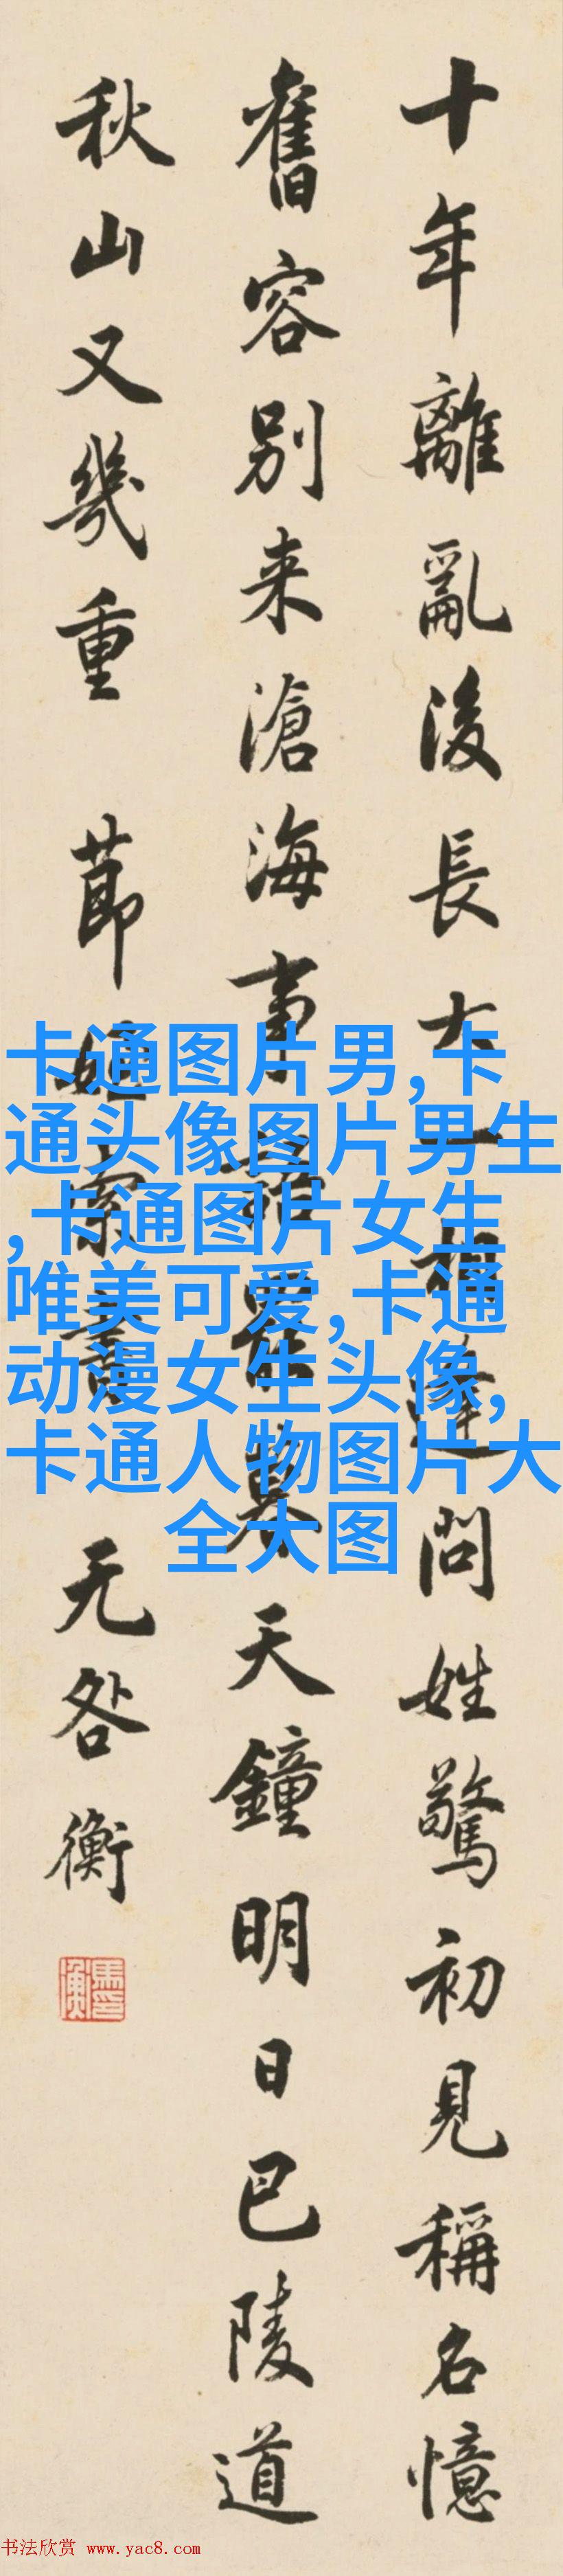 十年離亂後長大一相逢問姓驚初見稱名憶
舊容別来滄海事語罷暮天鐘明日巴陵道
秋山又幾重 節姪索書 无咎衡
卡通图片男,卡
通头像图片男生
,卡通图片女生
唯美可爱,卡通
动漫女生头像,
卡通人物图片大
全大图
书法欣赏 www.yac8.com